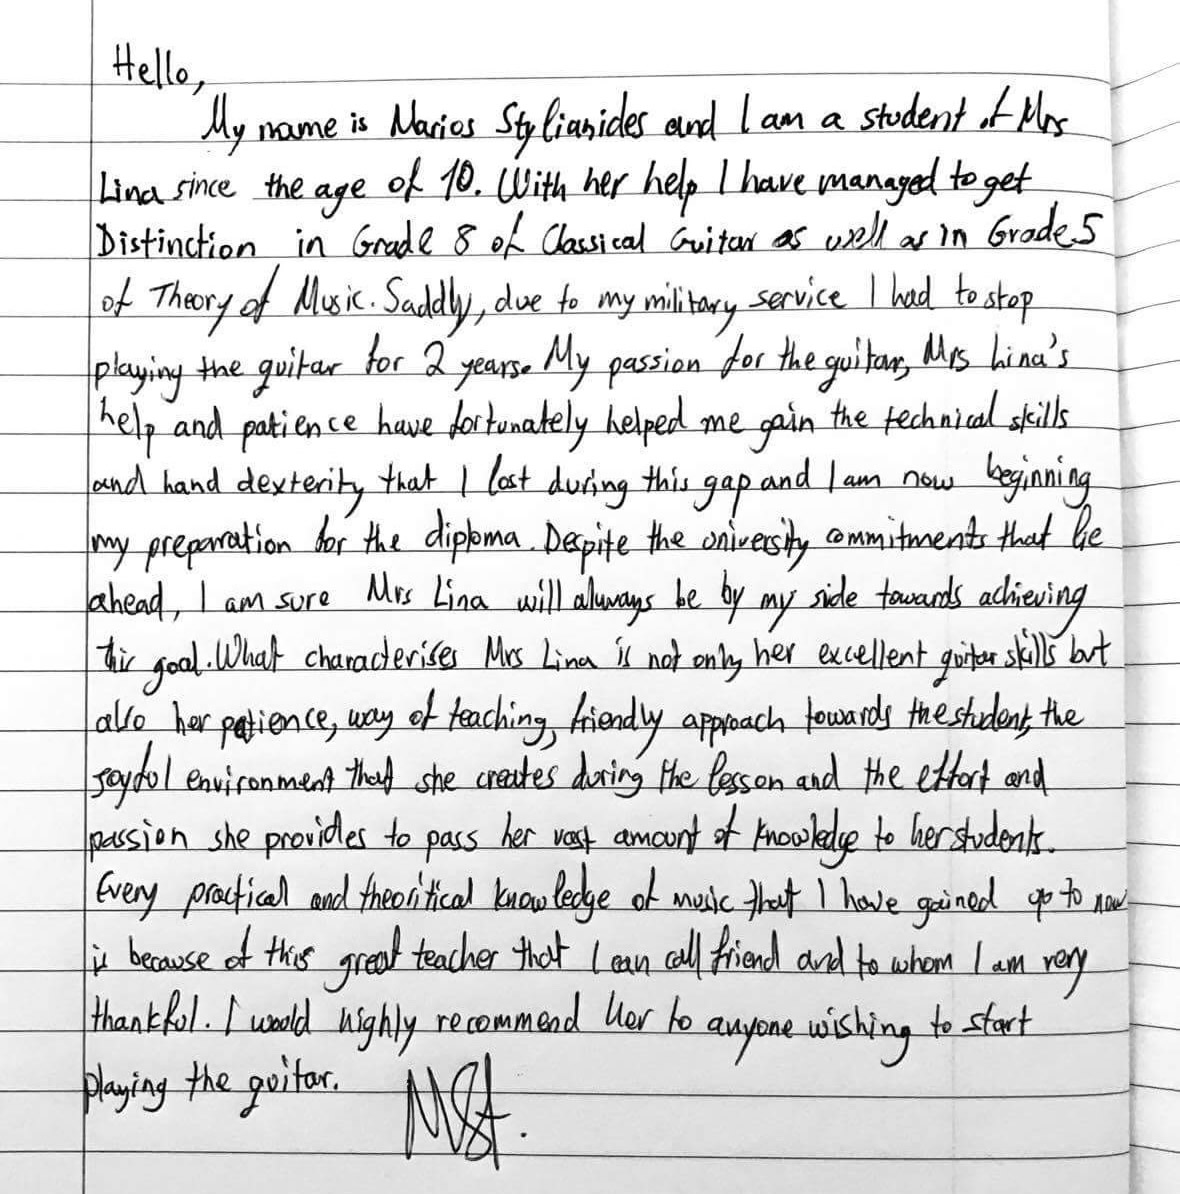 Hello,
My name is Marios Stylianides and I am a student of Mrs
Lina since the age of 10. With her help I have managed to get
Distinction in Grade 8 of Classical Guitar as well as in Grade 5
of Theory of Music. Saddly, due to my military service I had to stop
playing the guitar for 2 years. My passion for the guitar, Mrs Lina's
help and patience have fortunately helped me gain the technical skills
and hand dexterity that I lost during this gap and I am now beginning
my preparation for the diploma. Despite the university commitments that lie
ahead, I am sure Mrs Lina will always be by my side towards achieving
this goal. What characterises Mrs Lina is not only her excellent guitar skills but
also her patience, way of teaching, friendly approach towards the students, the
joyful environment that she creates during the lesson and the effort and
passion she provides to pass her vast amount of knowledge to her students.
Every practical and theoritical knowledge of music that I have gained up to now
is because of this great teacher that I can call friend and to whom I am very
thankful. I would highly recommend her to anyone wishing to start
playing the guitar. MSt.